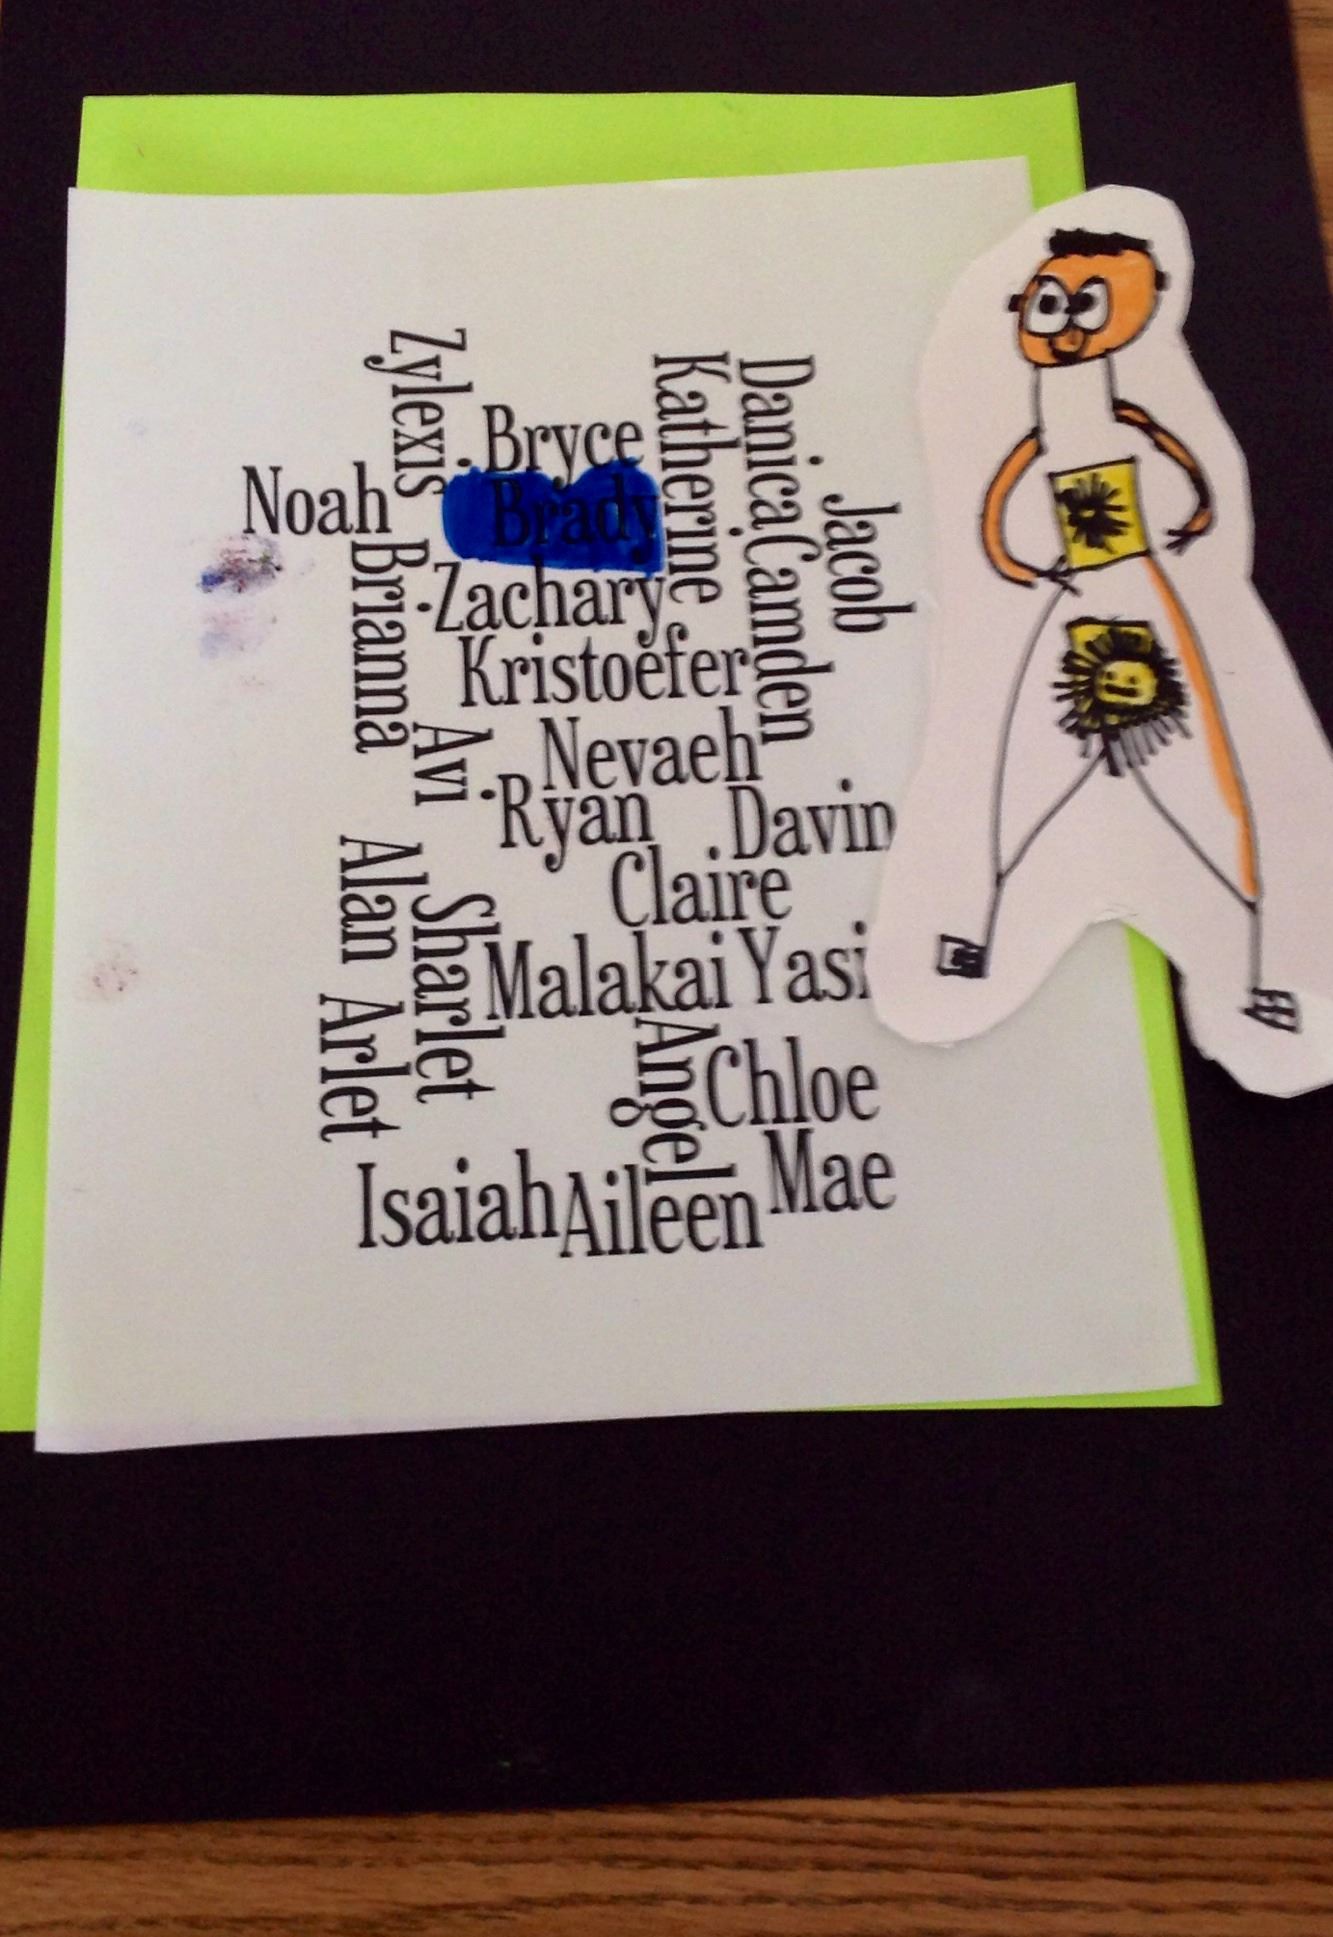 Zylexis
Katherine
Danica
.Bryce
Noah
Brady
Jacob
Brianna
.Zachary
Camden
Kristoefer
Avi
Nevaeh
.Ryan
Davin
Alan
Claire
Sharlet
Malakai
Yasi
Arlet
Angel
Chloe
Mae
Isaiah
Aileen